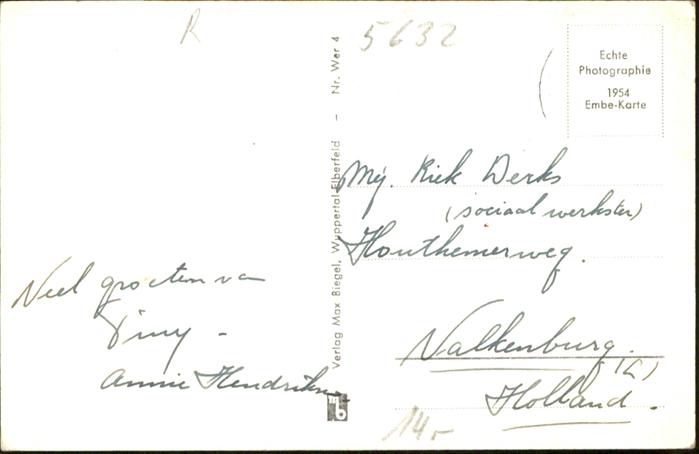 R
5632
Echte
Photographie
1954
Embe-Karte
Verlag Max Biegel, Wuppertal-Elberfeld - Nr. Wer 4
Mej. Riek Derks
(sociaal werkster)
Houthemerweg.
Valkenburg.
(L)
Holland.
Veel groeten van
Tiny -
Annie Hendriks
mb
14,-